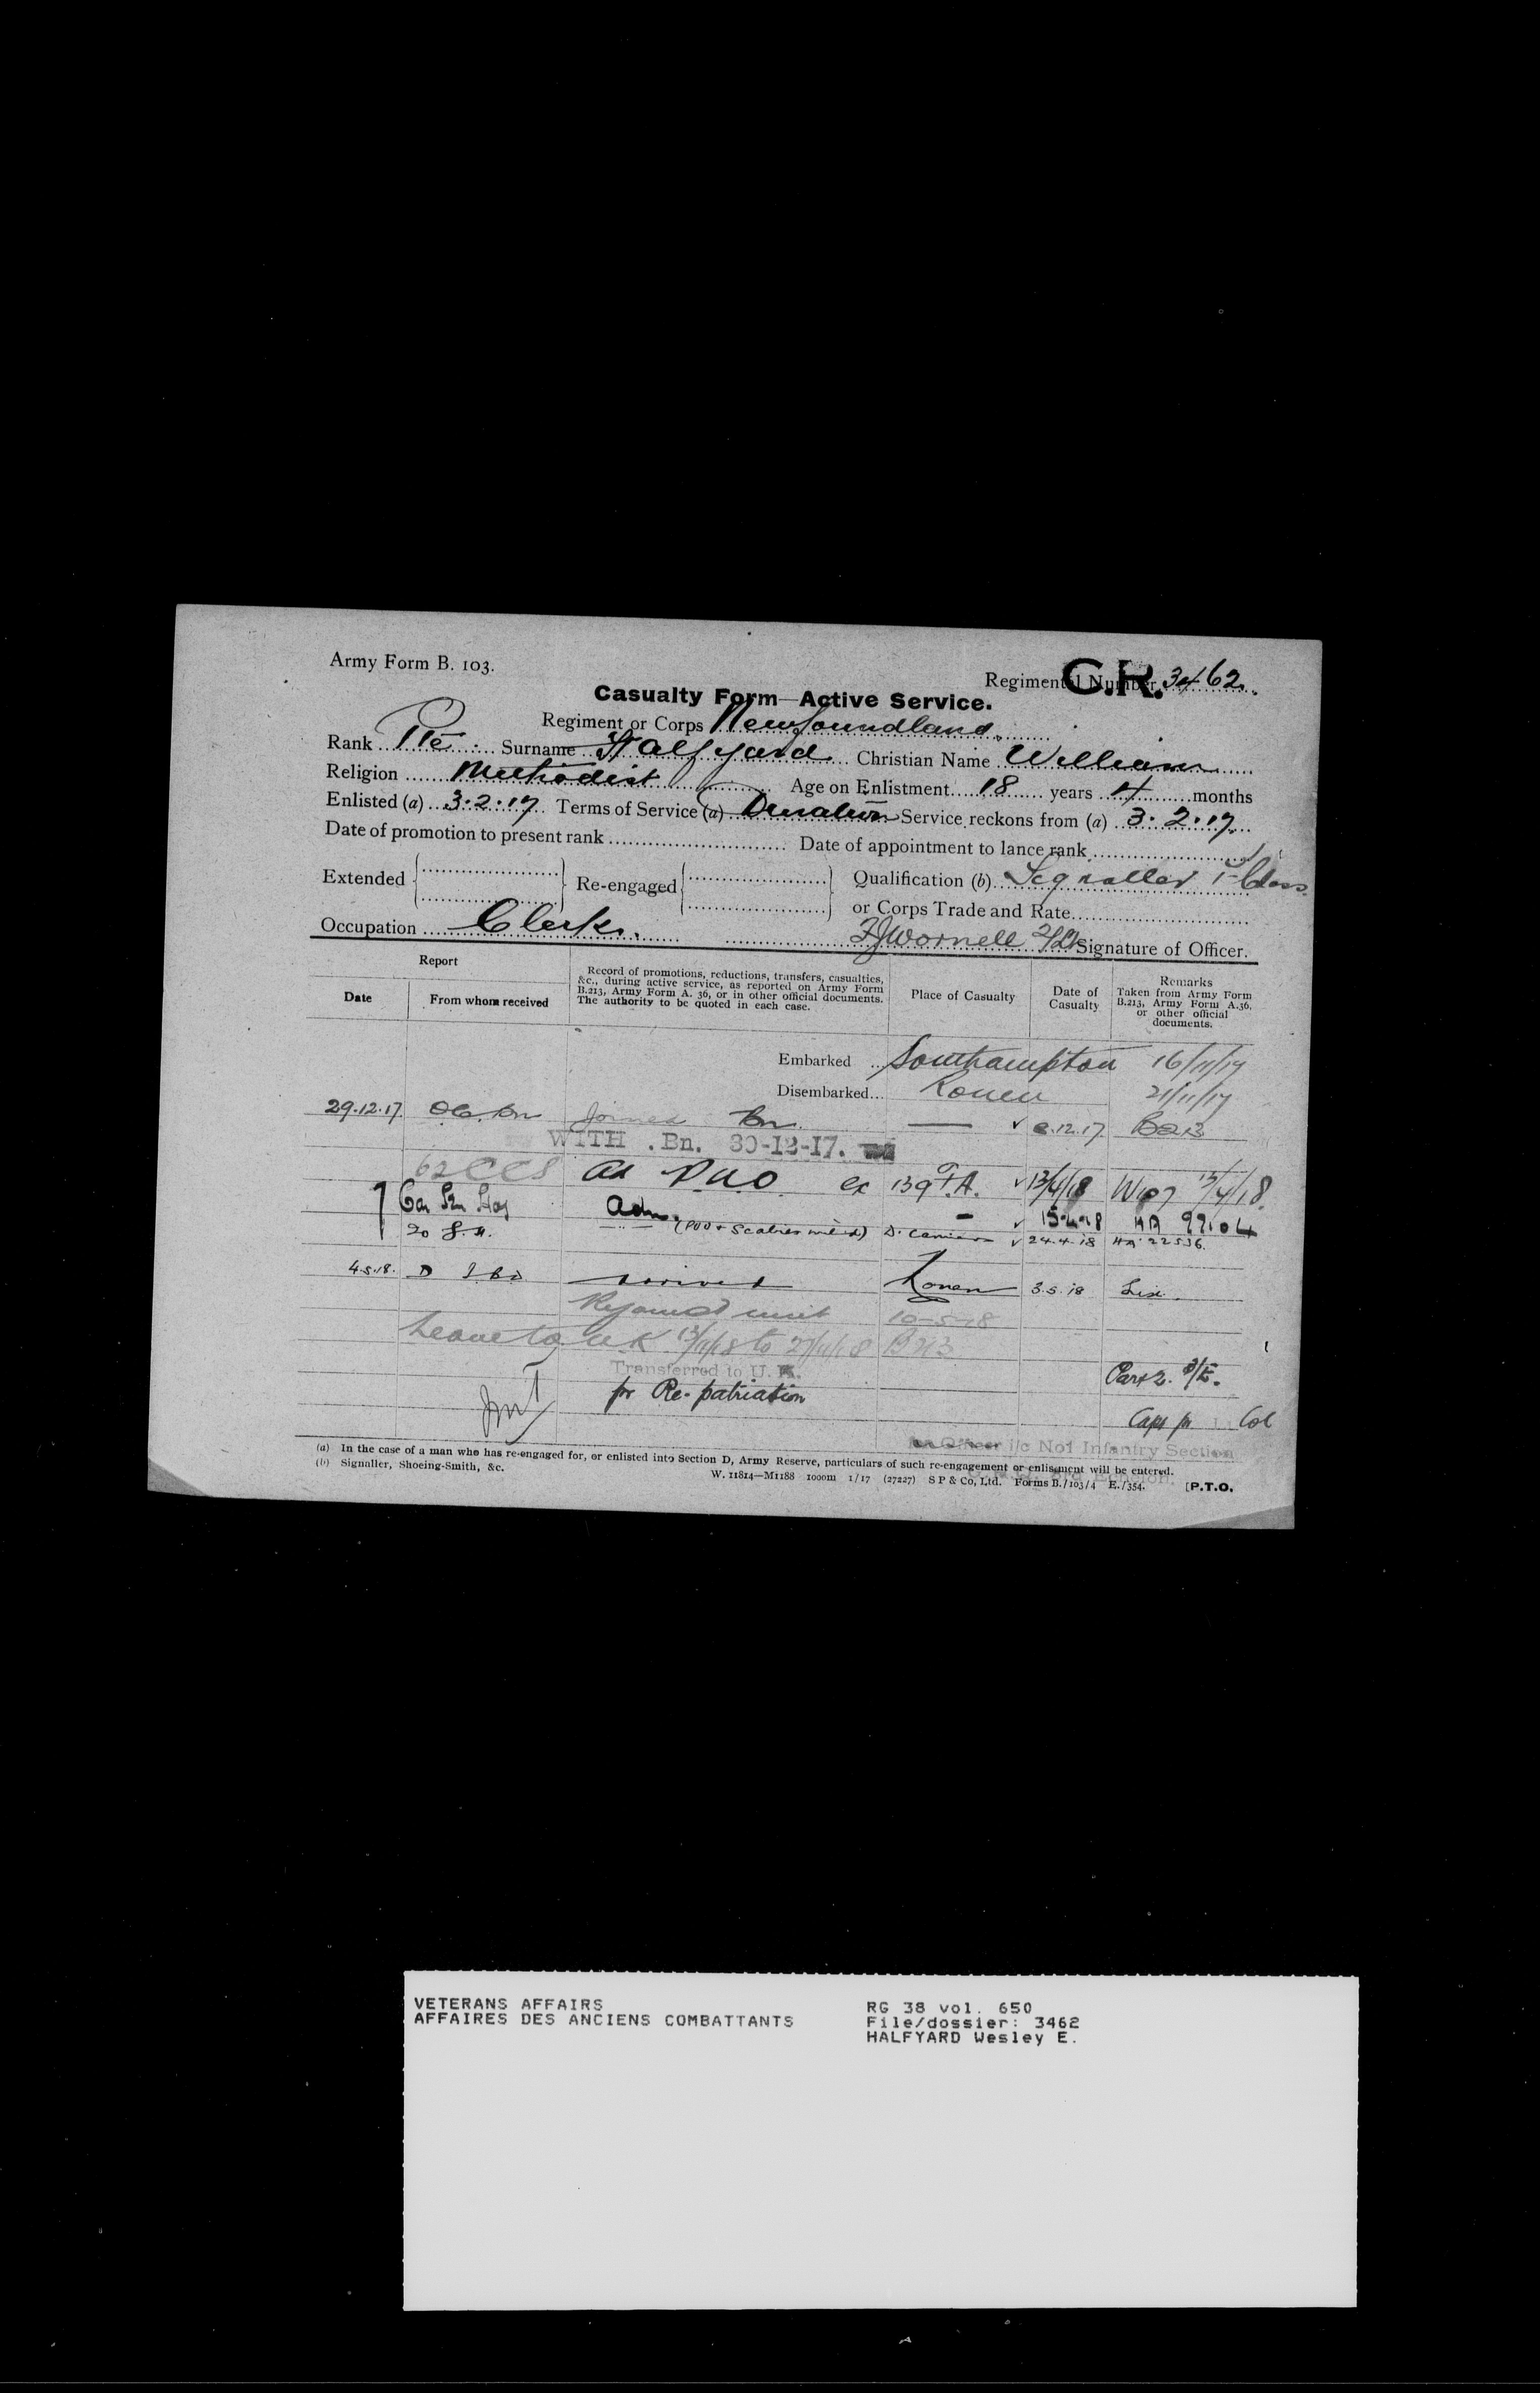 Army Form B. 103.
C.R.
Regimental Number 3462.
Casualty Form—Active Service.
Regiment or Corps Newfoundland.
Rank Pte Surname Halfyard Christian Name William
Religion Methodist Age on Enlistment 18 years 4 months
Enlisted (a) 3.2.17 Terms of Service (a) Duration Service reckons from (a) 3.2.17
Date of promotion to present rank Date of appointment to lance rank
Extended Re-engaged Qualification (b) Signaller 1st Class
or Corps Trade and Rate
Occupation Clerk. F J Wornell 2/Lt Signature of Officer.
Report
Date
From whom received
Record of promotions, reductions, transfers, casualties, &c., during active service, as reported on Army Form B.213, Army Form A. 36, or in other official documents. The authority to be quoted in each case.
Place of Casualty
Date of Casualty
Remarks
Taken from Army Form B.213, Army Form A.36, or other official documents.
Embarked Southampton 16/11/17
Disembarked Rouen 21/11/17
29.12.17. OC. Bn Joined Bn. — .12.17. B213
WITH Bn. 30-12-17.
62 CCS Ad P.U.O. ex 139 F.A. 13/4/18 W 13/4/18.
Can Hos Adm. - 15.4.18 HA 99104
20 G.H. (PUO + Scabies mild) D. Camiers 24.4.18 HA 22536.
4.5.18. D I.B.D arrived Rouen 3.5.18 List.
Rejoined unit 10-5-18
Leave to U.K 13/11/18 to 27/11/18 B213
Transferred to U.K.
for Re-patriation
Part 2.
Capt for Col
for Officer i/c No1 Infantry Section
Echelon.
(a) In the case of a man who has re-engaged for, or enlisted into Section D, Army Reserve, particulars of such re-engagement or enlistment will be entered.
(b) Signaller, Shoeing-Smith, &c.
W. 11814—M1188 1000m 1/17 (27227) S P & Co, Ltd. Forms B./103/4 E./354. [P.T.O.
VETERANS AFFAIRS
AFFAIRES DES ANCIENS COMBATTANTS
RG 38 vol. 650
File/dossier: 3462
HALFYARD Wesley E.